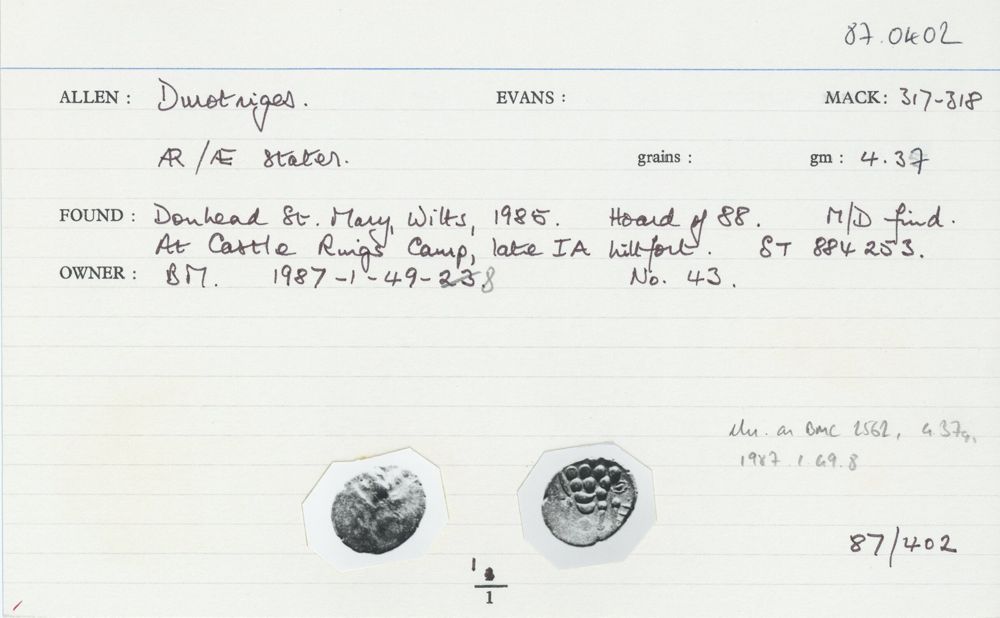 87.0402
ALLEN : Durotriges. EVANS : MACK: 317-318
ÆR/Æ Stater. grains : gm : 4.37
FOUND : Donhead St. Mary, Wilts, 1985. Hoard of 88. M/D find.
At Castle Rings Camp, late IA hillfort. ST 884 253.
OWNER : BM. 1987-1-49-238 No. 43.
Illus. as BMC 2562, 4.37g,
1987.1.49.8
87/402
1
1